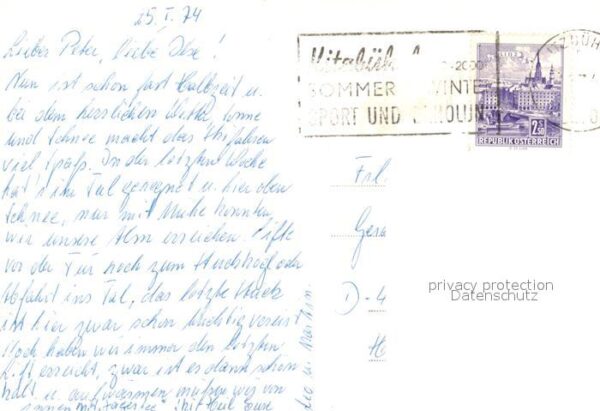 25.I.74
Lieber Peter, liebe Ilse!
Nun ist schon fast Halbzeit u.
bei dem herrlichen Wetter, Sonne
und Schnee macht das Skifahren
viel Spaß. In der letzten Woche
hat's im Tal geregnet u. hier oben
Schnee, nur mit Mühe konnten
wir unsere Alm erreichen. Lifte
vor der Tür noch zum oder
Abfahrt ins Tal, das letzte Stück
ist hier zwar schon tüchtig vereist
Noch haben wir immer den letzten
Lift erreicht, zwar ist es dann schon
kalt u. aufwärmen müssen wir von
innen mit Jagertee.
u.
Kitzbühel
-2000
SOMMER WINTER
SPORT UND ERHOLUNG
KITZBÜHEL
2.50
REPUBLIK ÖSTERREICH
Frl
D-4
H
privacy protection
Datenschutz